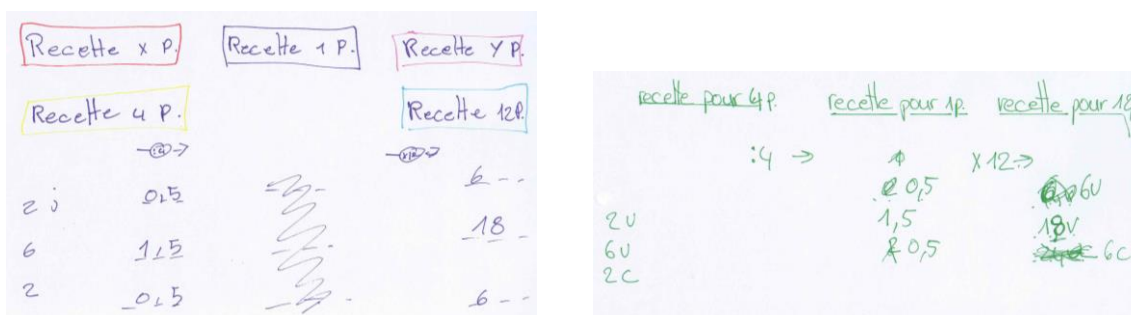 Recette x P. Recette 1 P. Recette Y P.
Recette 4 P. Recette 12P.
:4 → x12 →
2 j 0,5 6
6 1,5 18
2 0,5 6
recette pour 4p. recette pour 1p. recette pour 12
:4 → x12 →
2U 0,5 6U
6U 1,5 18U
2C 0,5 6C